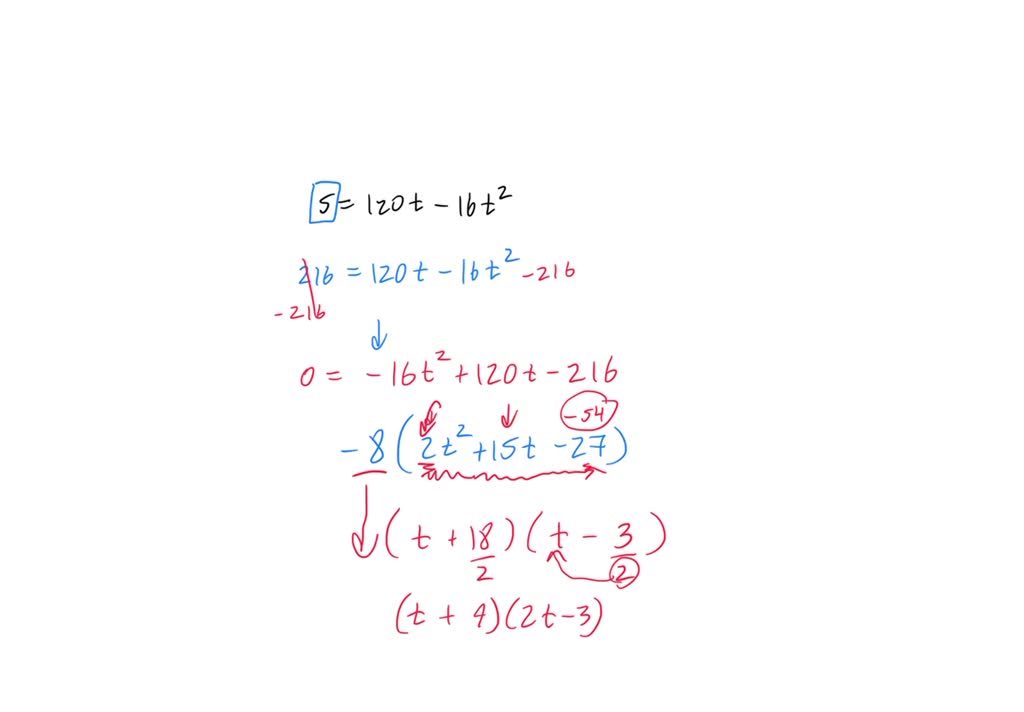 S = 120t - 16t²
216 = 120t - 16t² - 216
- 216
0 = - 16t² + 120t - 216
- 54
- 8 ( 2t² + 15t - 27 )
( t + 18/2 ) ( t - 3/2 )
( t + 9 ) ( 2t - 3 )